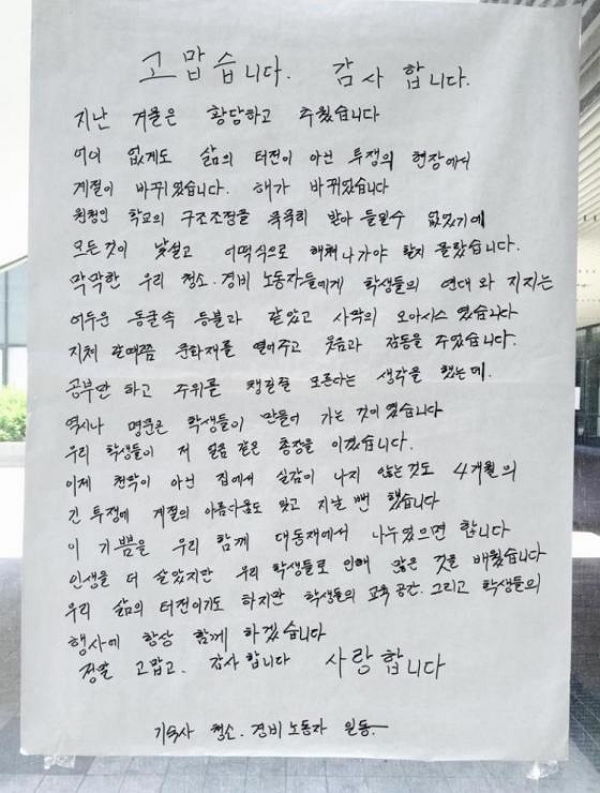 고맙습니다. 감사합니다.
지난 겨울은 황당하고 추웠습니다
어이 없게도 삶의 터전이 아닌 투쟁의 현장에서
계절이 바뀌었습니다. 해가 바뀌었습니다
원청인 학교의 구조조정을 묵묵히 받아 들일수 없었기에
모든것이 낯설고 어떡식으로 헤쳐나가야 할지 몰랐습니다.
막막한 우리 청소·경비 노동자들에게 학생들의 연대와 지지는
어두운 동굴속 등불과 같았고 사막의 오아시스 였습니다
지쳐 갈때쯤 문화재를 열어주고 웃음과 감동을 주었습니다.
공부만 하고 주위를 챙길줄 모른다는 생각을 했는데.
역시나 명문은 학생들이 만들어 가는 것이였습니다
우리 학생들이 저 얼음 같은 총장을 이겼습니다.
이제 천막이 아닌 집에서 실감이 나지 않는것도 4개월의
긴 투쟁에 계절의 아름다움도 잊고 지날 뻔 했습니다
이 기쁨을 우리 함께 대동재에서 나누었으면 합니다
인생을 더 살았지만 우리 학생들로 인해 많은 것을 배웠습니다
우리 삶의 터전이기도 하지만 학생들의 교육공간. 그리고 학생들의
행사에 항상 함께 하겠습니다
정말 고맙고. 감사합니다 사랑합니다
기숙사 청소·경비노동자 일동.